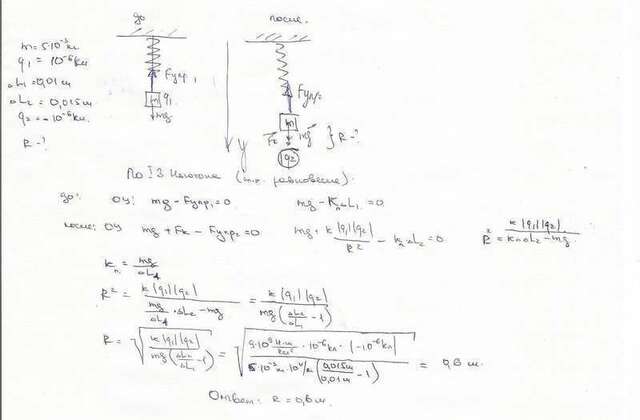 до
после.
m = 5·10⁻³ кг
q₁ = 10⁻⁶ Кл
ΔL₁ = 0,01 м
ΔL₂ = 0,015 м
q₂ = -10⁻⁶ Кл.
R - ?
Fупр₁
m q₁
mg
Fупр₂
m
Fк mg
q₂
} R - ?
y
По I З Ньютона (усл. равновесие).
до: ОУ: mg - Fупр₁ = 0 mg - KпΔL₁ = 0
после: ОУ mg + Fк - Fупр₂ = 0 mg + k|q₁||q₂|/R² - kпΔL₂ = 0 R² = k|q₁||q₂|/(KпΔL₂ - mg)
Kп = mg/ΔL₁
R² = k|q₁||q₂|/(mg/ΔL₁ · ΔL₂ - mg) = k|q₁||q₂|/(mg(ΔL₂/ΔL₁ - 1))
R = √(k|q₁||q₂|/(mg(ΔL₂/ΔL₁ - 1))) = √(9·10⁹ Н·м²/Кл² · 10⁻⁶ Кл · |-1·10⁻⁶ Кл|/(5·10⁻³ кг · 10 Н/кг (0,015м/0,01м - 1))) = 0,6 м.
Ответ: R = 0,6 м.